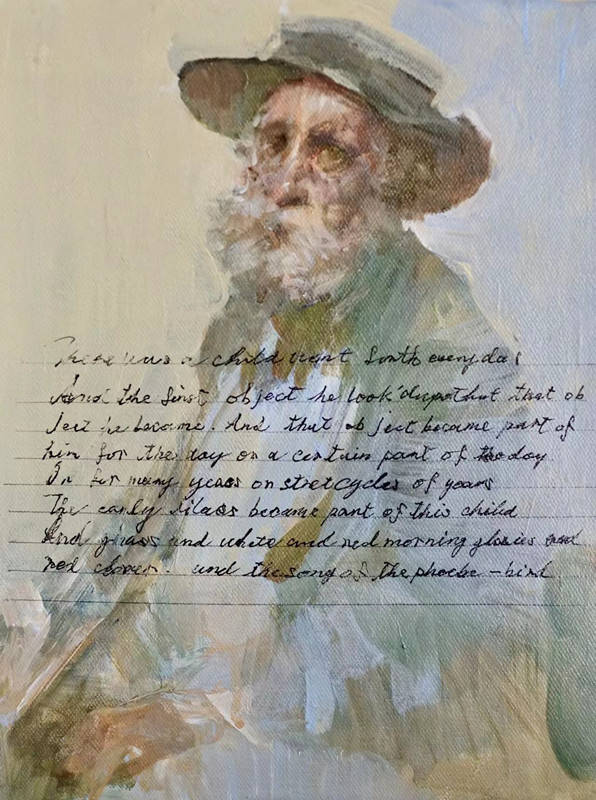 There was a child went forth every day
And the first object he look'd upon that that ob
ject he became. And that object became part of
him for the day or a certain part of the day
Or for many years or stretcycles of years
The early lilacs became part of this child
And grass and white and red morning glories and
red clover. and the song of the phoebe-bird